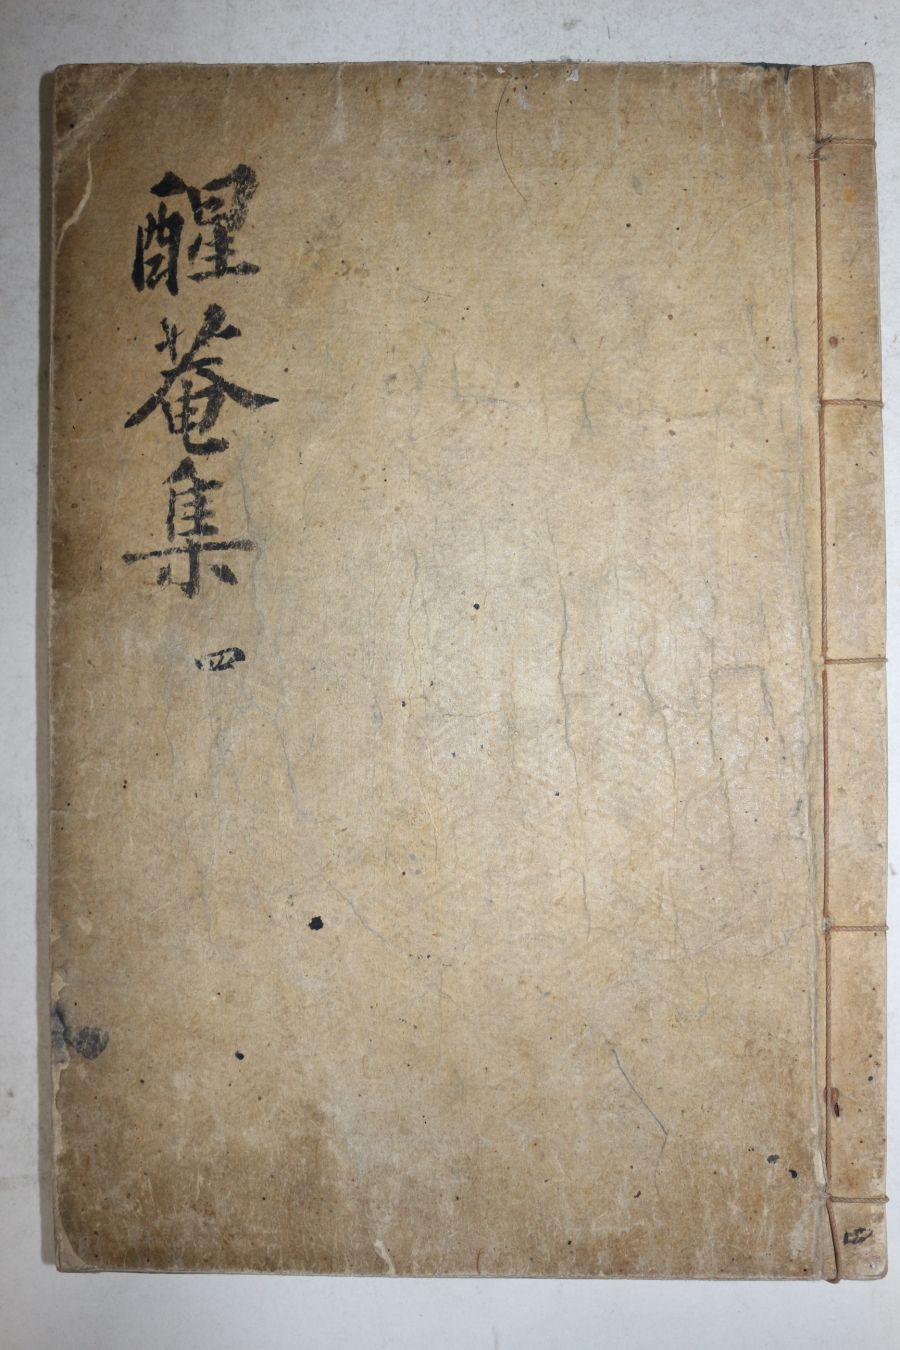 醒菴集
四
四